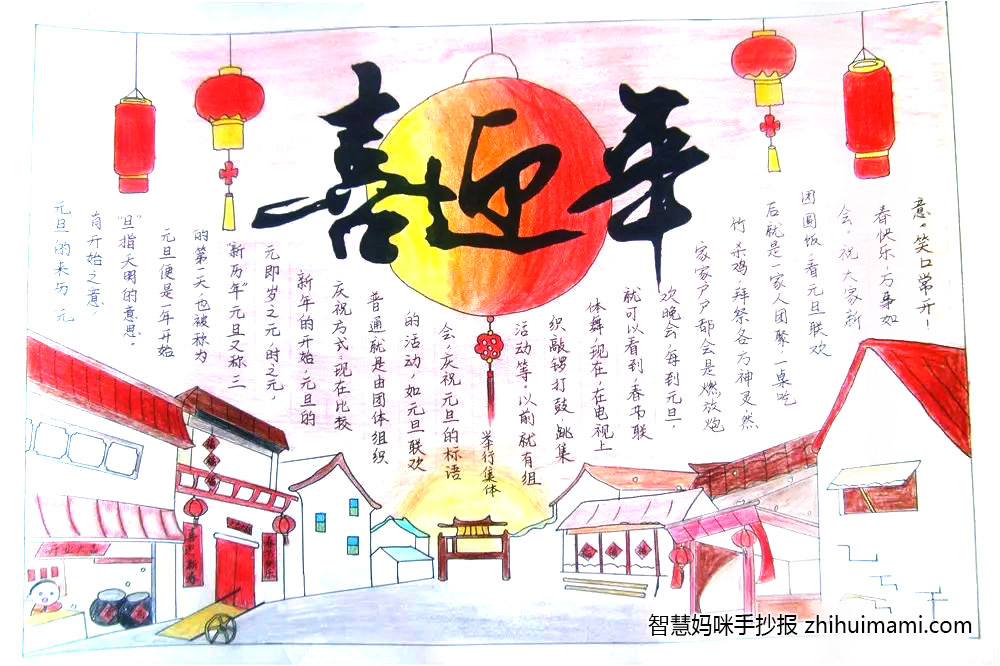 喜迎年
元旦的来历,元
有开始之意,
“旦”指天明的意思。
元旦便是一年开始
的第一天,也被称为
“新历年”元旦又称三
元即岁之元,时之元,
新年的开始,元旦的
庆祝方式,现在比较
普通就是由团体组织
的活动,如元旦联欢
会,庆祝元旦的标语
举行集体
活动等,以前就有组
织敲锣打鼓,跳集
体舞,现在,在电视上
就可以看到,春节联
欢晚会,每到元旦,
家家户户都会是燃放炮
竹,杀鸡,拜祭各方神灵,然
后就是一家人团聚,一桌吃
团圆饭,看元旦联欢
会,祝大家新
春快乐,万事如
意,笑口常开!
开业大吉
智慧妈咪手抄报 zhihuimami.com